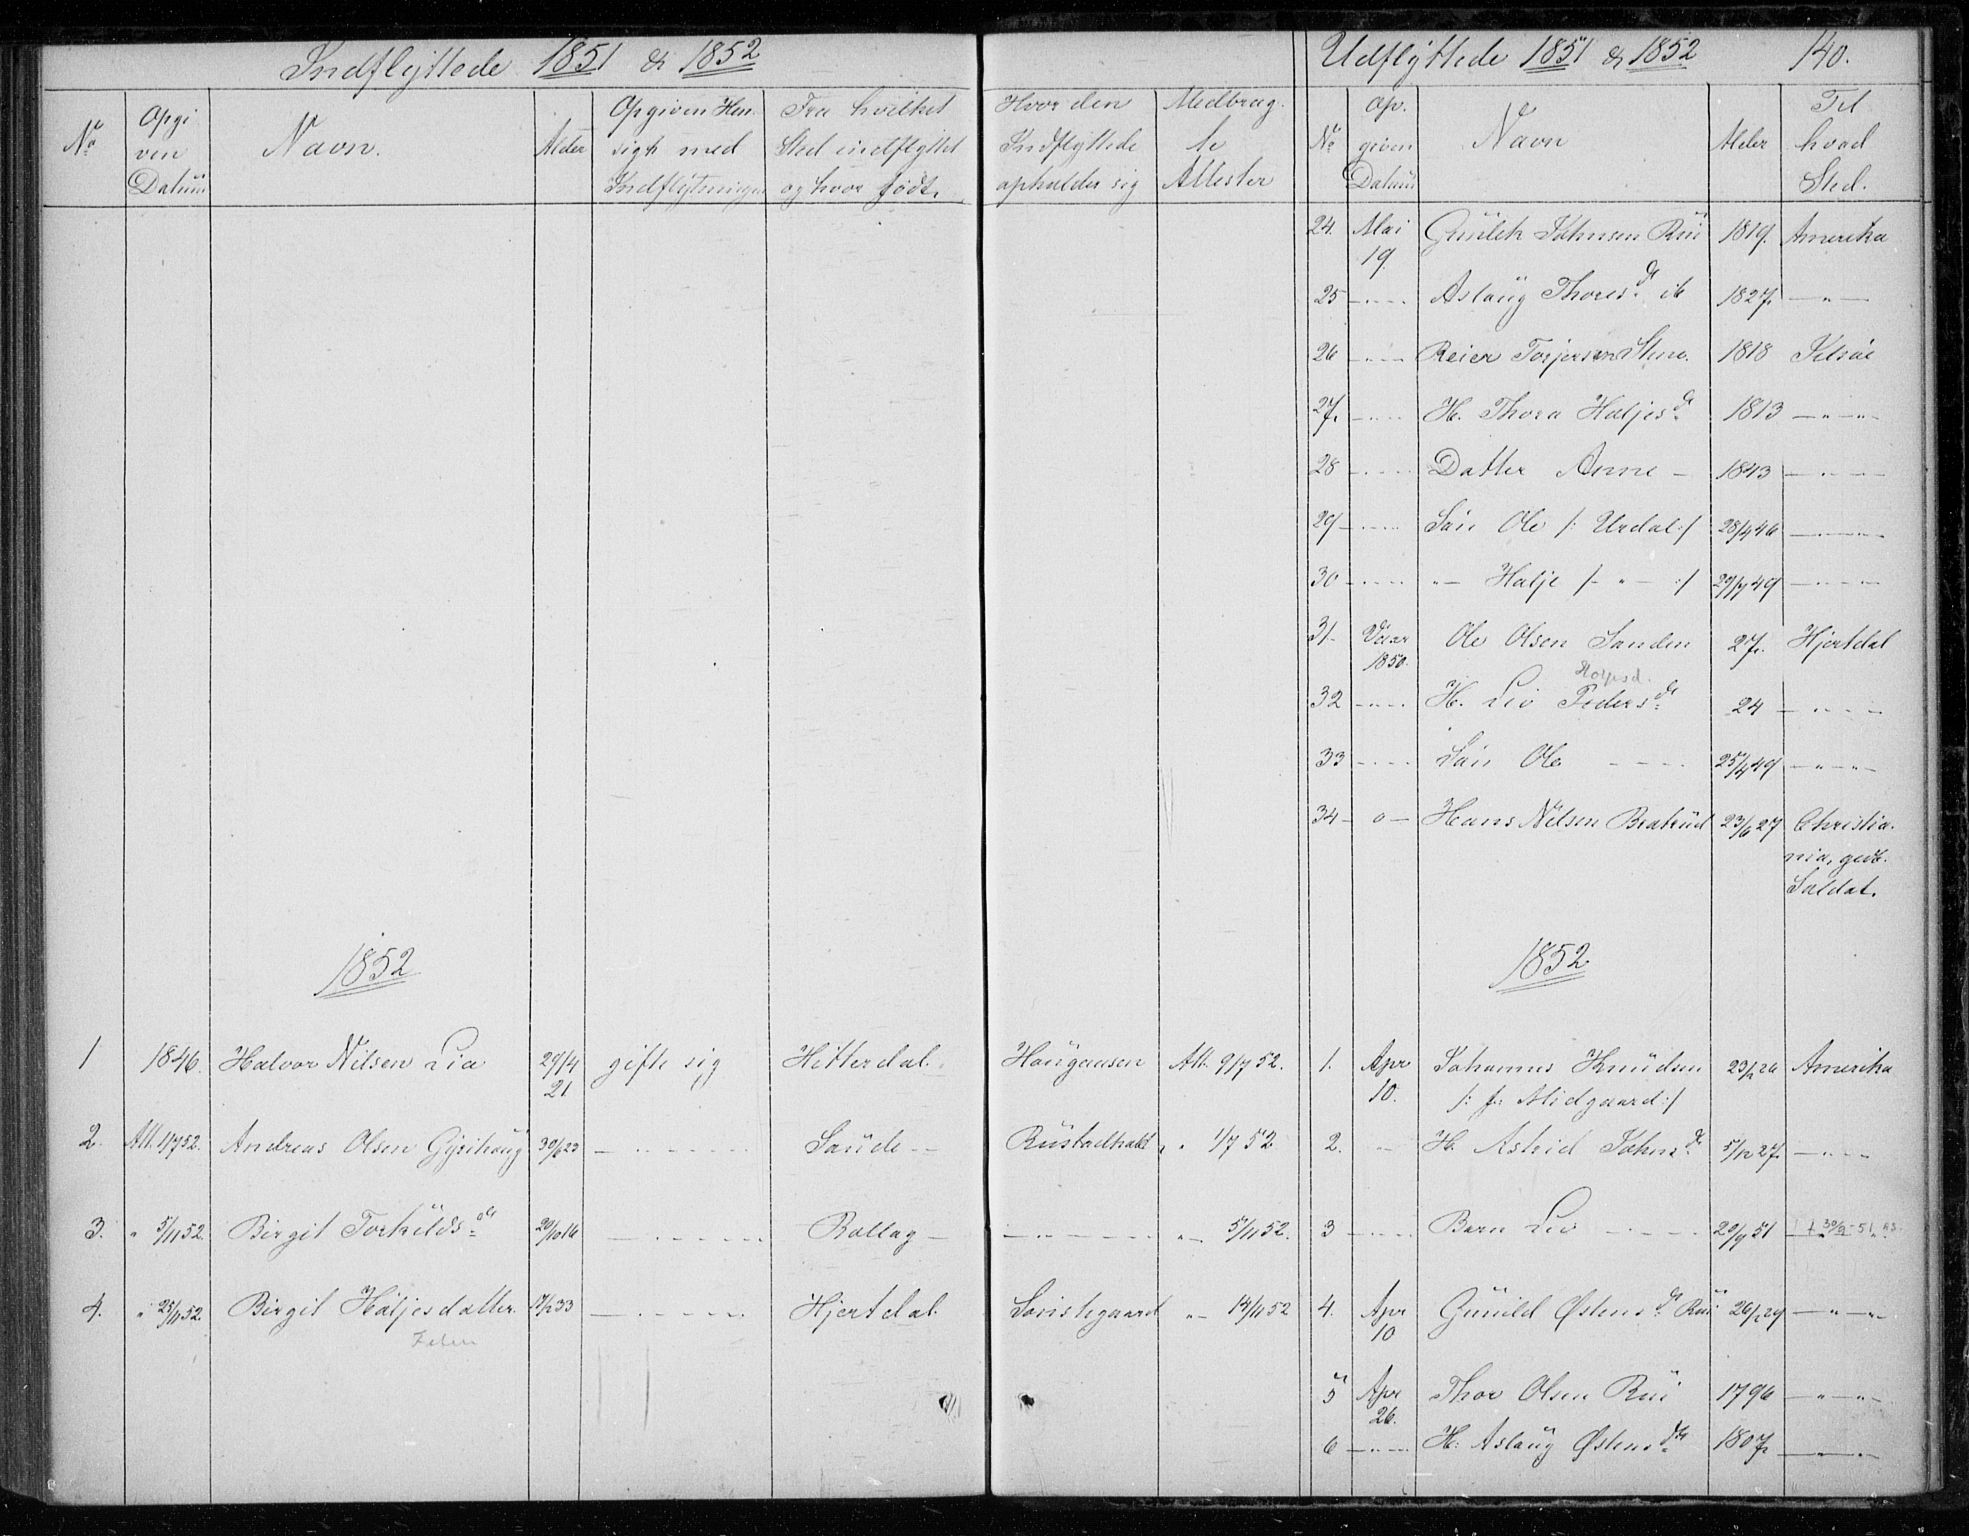 Indflyttede 1851 & 1852
No
Opgi
ven
Datum
Navn.
Alder
Opgiven Hen
sigt med
Indflytningen
Fra hvilket
Sted indflyttet
og hvor født.
Hvor den
Indflyttede
opholder sig
Medbrag
te
Attester
1852
1 1846. Halvor Nilsen Lia 29/4 21 gifte sig Hitterdal. Haugansen Att. 9/7 52.
2. Att. 1/7 52. Andreas Olsen 30/6 23 — " — Saude — Rustadhaldt " 1/7 52
3. " 5/11 52. Birgit Torkilds dr 20/10 16 — " — Rollag — — " — " — 5/11 52.
4. " 25/11 52 Birgit Håljesdatter. 17/2 33 — " — Hjertdal. " — 13/11 52
Udflyttede 1851 & 1852
140.
No
Op.
given
Datum
Navn
Alder
Til
hvad
Sted.
24. Mai 19. Gunleik Johnsen Rui 1819. Amerika
25 — " — Aslaug Thores dr ib 1827. — " —
26 — " — Reier Torjersen 1818
27. — " — H. Thora Haljes dr 1813 — " —
28 — " — Datter Anne — 1843 — " —
29 — " — Søn Ole /: Urdal :/ 28/4 46 — " —
30 — " — " — Halje /: — " — :/ 29/7 49 — " —
31. Vaar 1850. Ole Olsen Sanden 27. Hjertdal
32 — " — H. Liv Peders dr 24 — " —
33 — " — Søn Ole — " — 25/4 49 — " —
34 — o — Hans Nilsen Bratrud 23/6 27 Christia-
nia, gevb.
Soldat.
1852
1. Apr 10. Johannes Knudsen 23/2 26 Amerika
/: f. Midgaard :/
2. — " — H. Astrid Johns dr 5/12 27. — " —
3 — " — Barn Liv — " — 29/9 51
4. Apr 10 Gunild Østens dr Rui 26/2 29 — " —
5 Apr 26. Thor Olsen Rui 1796 — " —
6 — " — H. Aslaug Østens dtr 1807. — " —